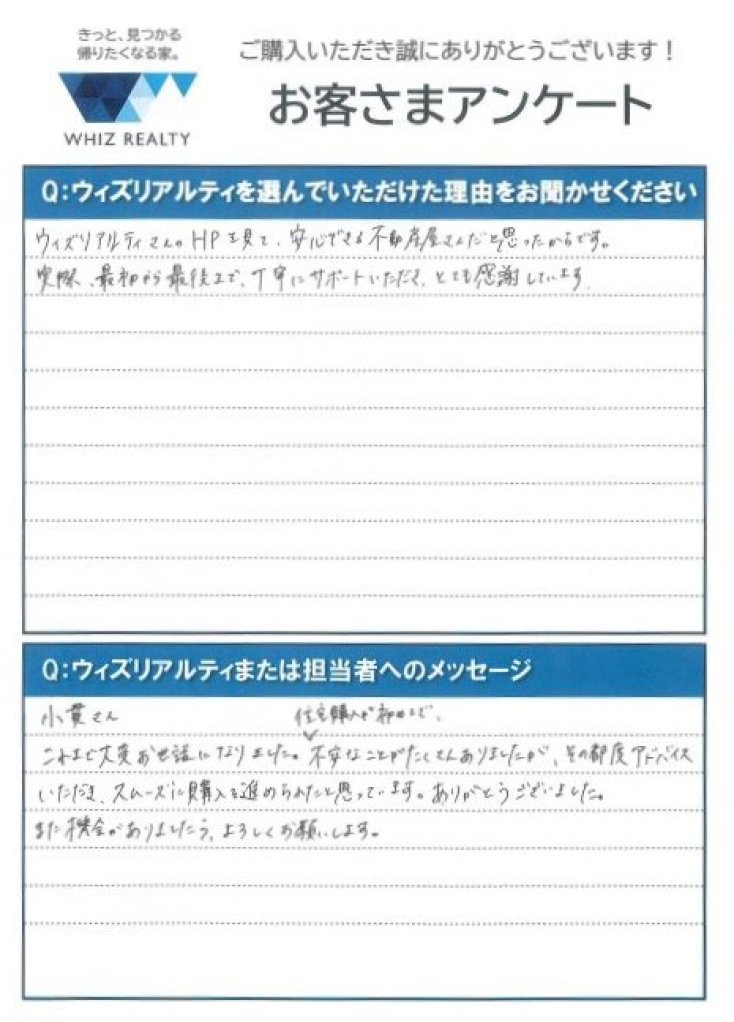 きっと、見つかる
帰りたくなる家。
WHIZ REALTY
ご購入いただき誠にありがとうございます！
お客さまアンケート
Q：ウィズリアルティを選んでいただけた理由をお聞かせください
ウィズリアルティさんのHPを見て、安心できる不動産屋さんだと思ったからです。
実際、最初から最後まで、丁寧にサポートいただき、とても感謝しています。
Q：ウィズリアルティまたは担当者へのメッセージ
小貫さん
住宅購入が初めてで、
これまで大変お世話になりました。不安なことがたくさんありましたが、その都度アドバイス
いただき、スムーズに購入を進められたと思っています。ありがとうございました。
また機会がありましたら、よろしくお願いします。